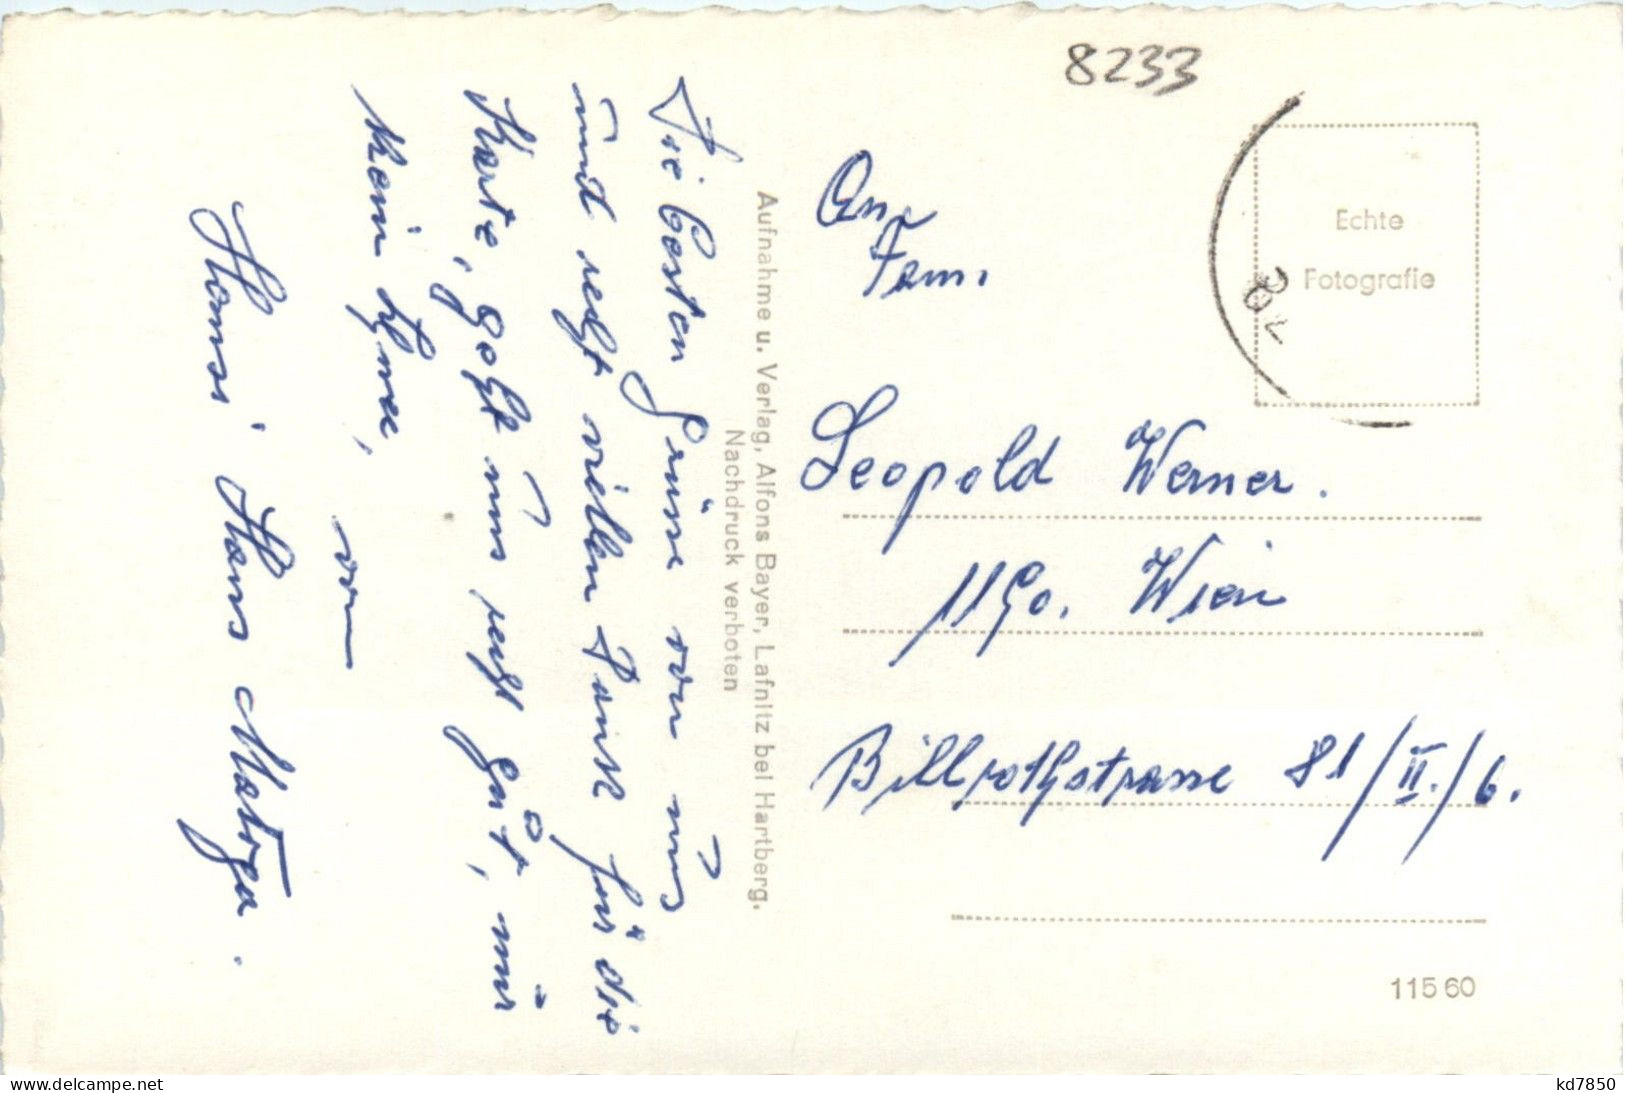 Die besten Grüsse von uns
und recht vielen Dank für die
Karte, geht uns recht gut, nur
kein
von
Hansi Hans
Aufnahme u. Verlag, Alfons Bayer, Lafnitz bei Hartberg.
Nachdruck verboten
8233
An
Fam.
Echte
Fotografie
Leopold Werner.
1190. Wien
Billrothstrasse 81/II./6.
115 60
www.delcampe.net
kd7850